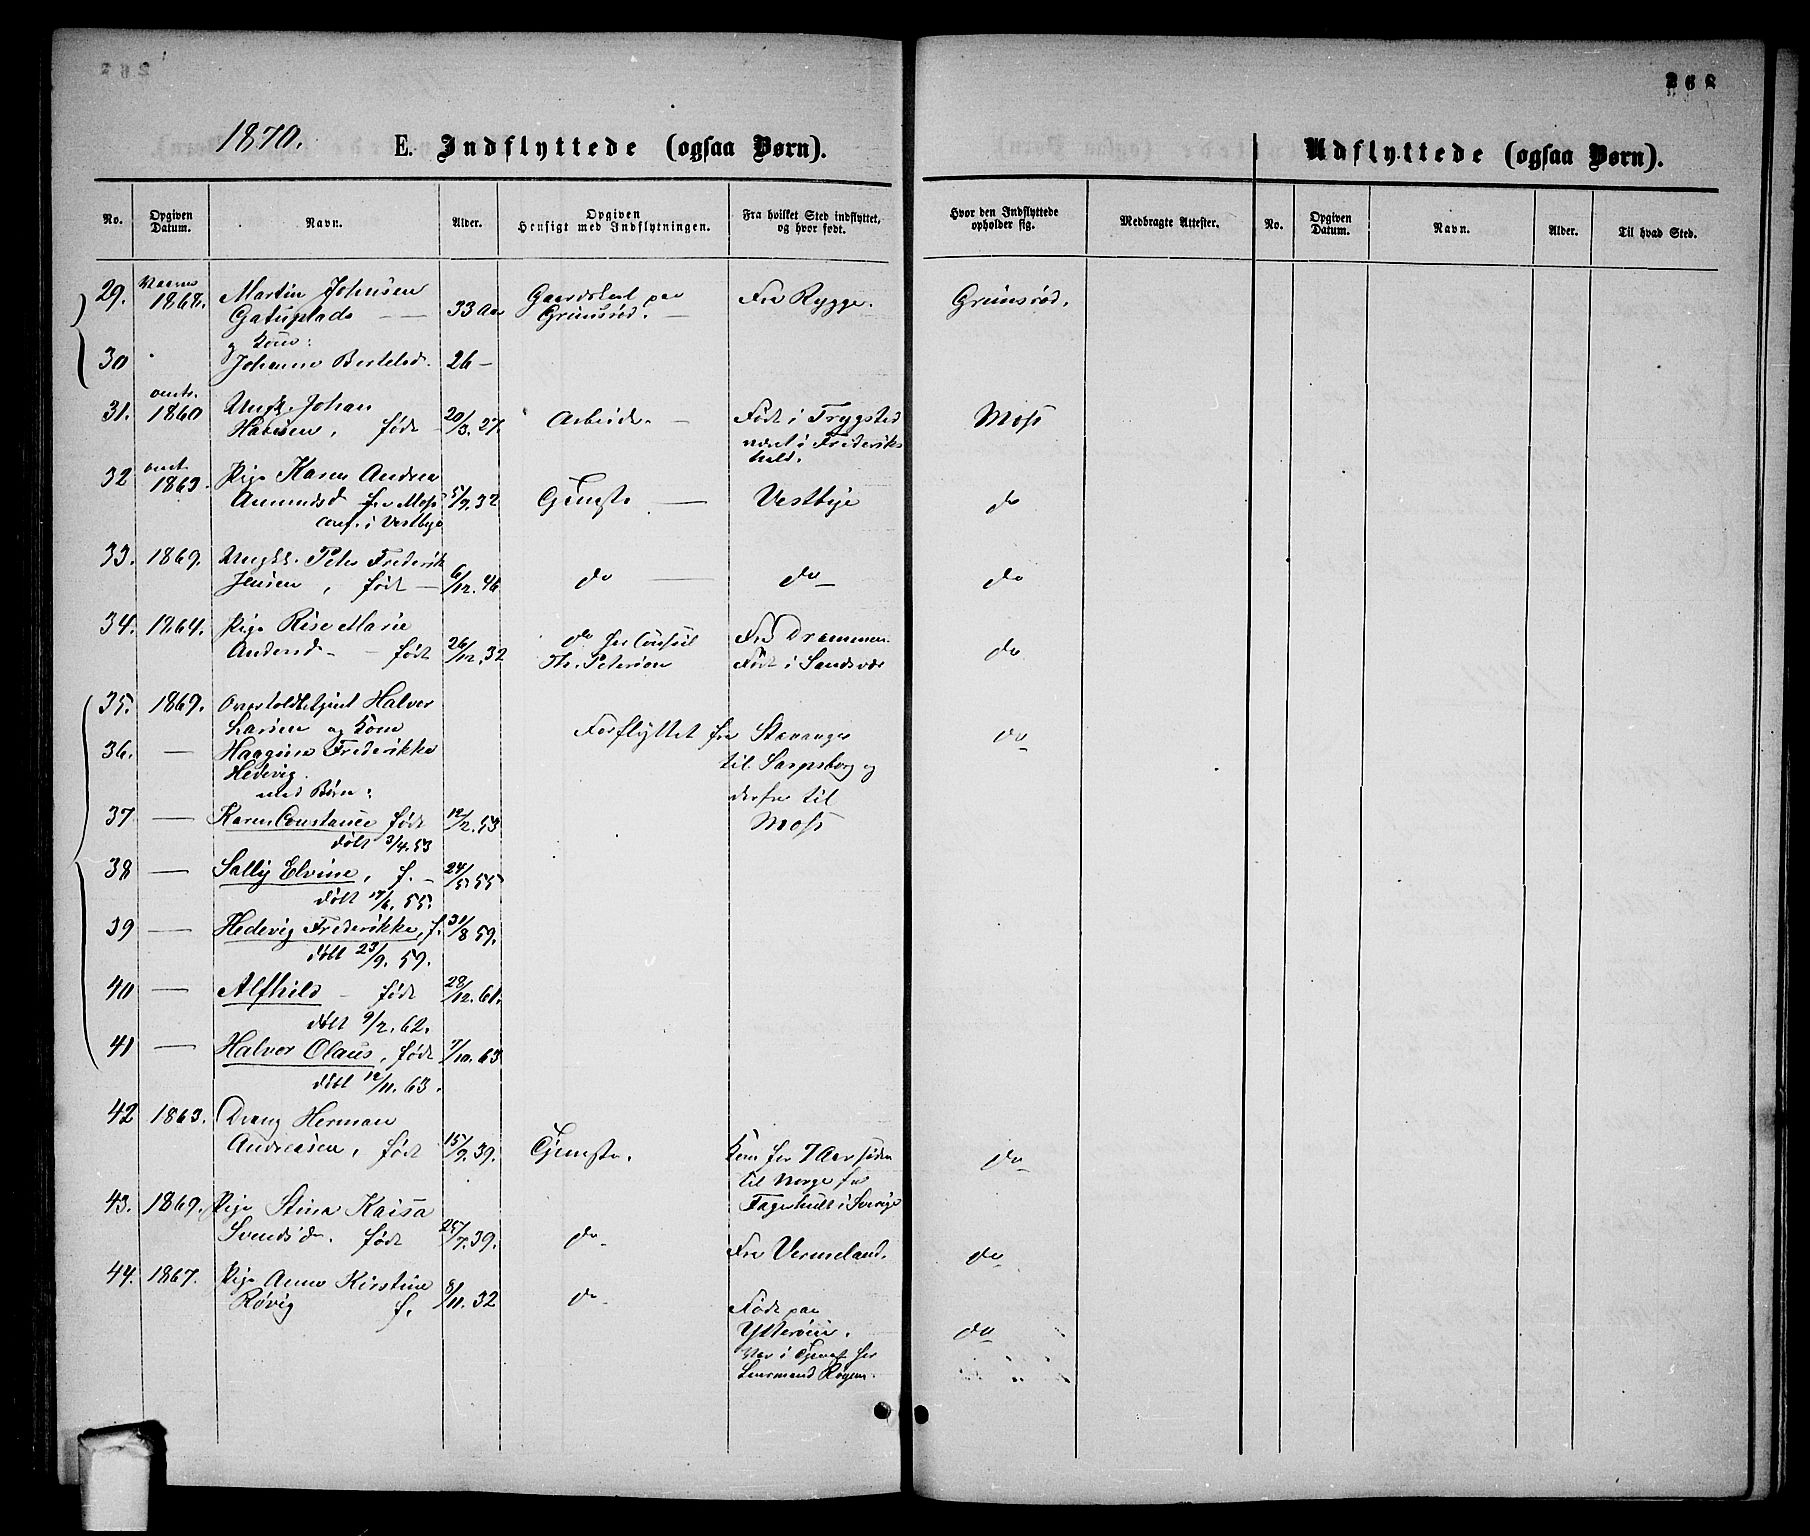 268
1870.
E. Indflyttede (ogsaa Børn).
Udflyttede (ogsaa Børn).
No. Opgiven Datum. Navn. Alder. Opgiven Hensigt med Indflytningen. Fra hvilket Sted indflyttet, og hvor født. Hvor den Indflyttede opholder sig. Medbragte Attester. No. Opgiven Datum. Navn. Alder. Til hvad Sted.
29. 1868. Martin Johnsen Gaardbest paa Fra Rygge. Grimsrød.
33 Aar Grimsrød. —
og Kone:
30 Johanne Bertelsd. 26 —
omtr.
31. 1860 Ungk. Johan
Hansen, født 20/3. 27. Arbeide. — Født i Trygsted Moss
været i Frederiks
hald.
omt.
32 1863. Pige Karen Andrea
Amundsd fra Moss 5/9. 32 Tjeneste — Vestbye do
conf. i Vestbye
33. 1869. Ungk. Peter Frederik
Jensen, født — 6/12. 46 do — do — do
34. 1864. Pige Rise Marie
Andersd — født 26/12. 32 do hos Consul Fra Drammen. do
Th. Peterson Født i Sandsvær
35. 1869. Overtoldbetjent Halvor
Larsen og Kone Forflyttet fra Stavanger do
36. — Haagine Frederikke
Hedevig. til Sarpsborg og
med Børn: derfra til
37 — Karen Constance født 12/2. 53 Moss
døbt 3/4. 53
38 — Sally Elvine, f. — 24/5. 55
døbt 17/6. 55.
39 — Hedevig Frederikke, f. 31/8 59.
døbt 23/9. 59.
40 — Alfhild — født 28/12. 61.
døbt 9/2. 62.
41 — Halvor Olaus, født 7/10. 63
døbt 12/11. 63.
42 1863. Dreng Herman
Andreasen, født 15/9. 39. Tjeneste. Kom for 7 Aar siden do
til Norge fra
Fagerhult i Sverige
43. 1869. Pige Stina Kaisa
Svendsd. født 25/7. 39. do Fra Vermeland. do
44. 1867. Pige Anne Kirstine
Røvig f. 8/11. 32 do Født paa
Ytterøen. do
Var i Tjenest hos
Lensmand